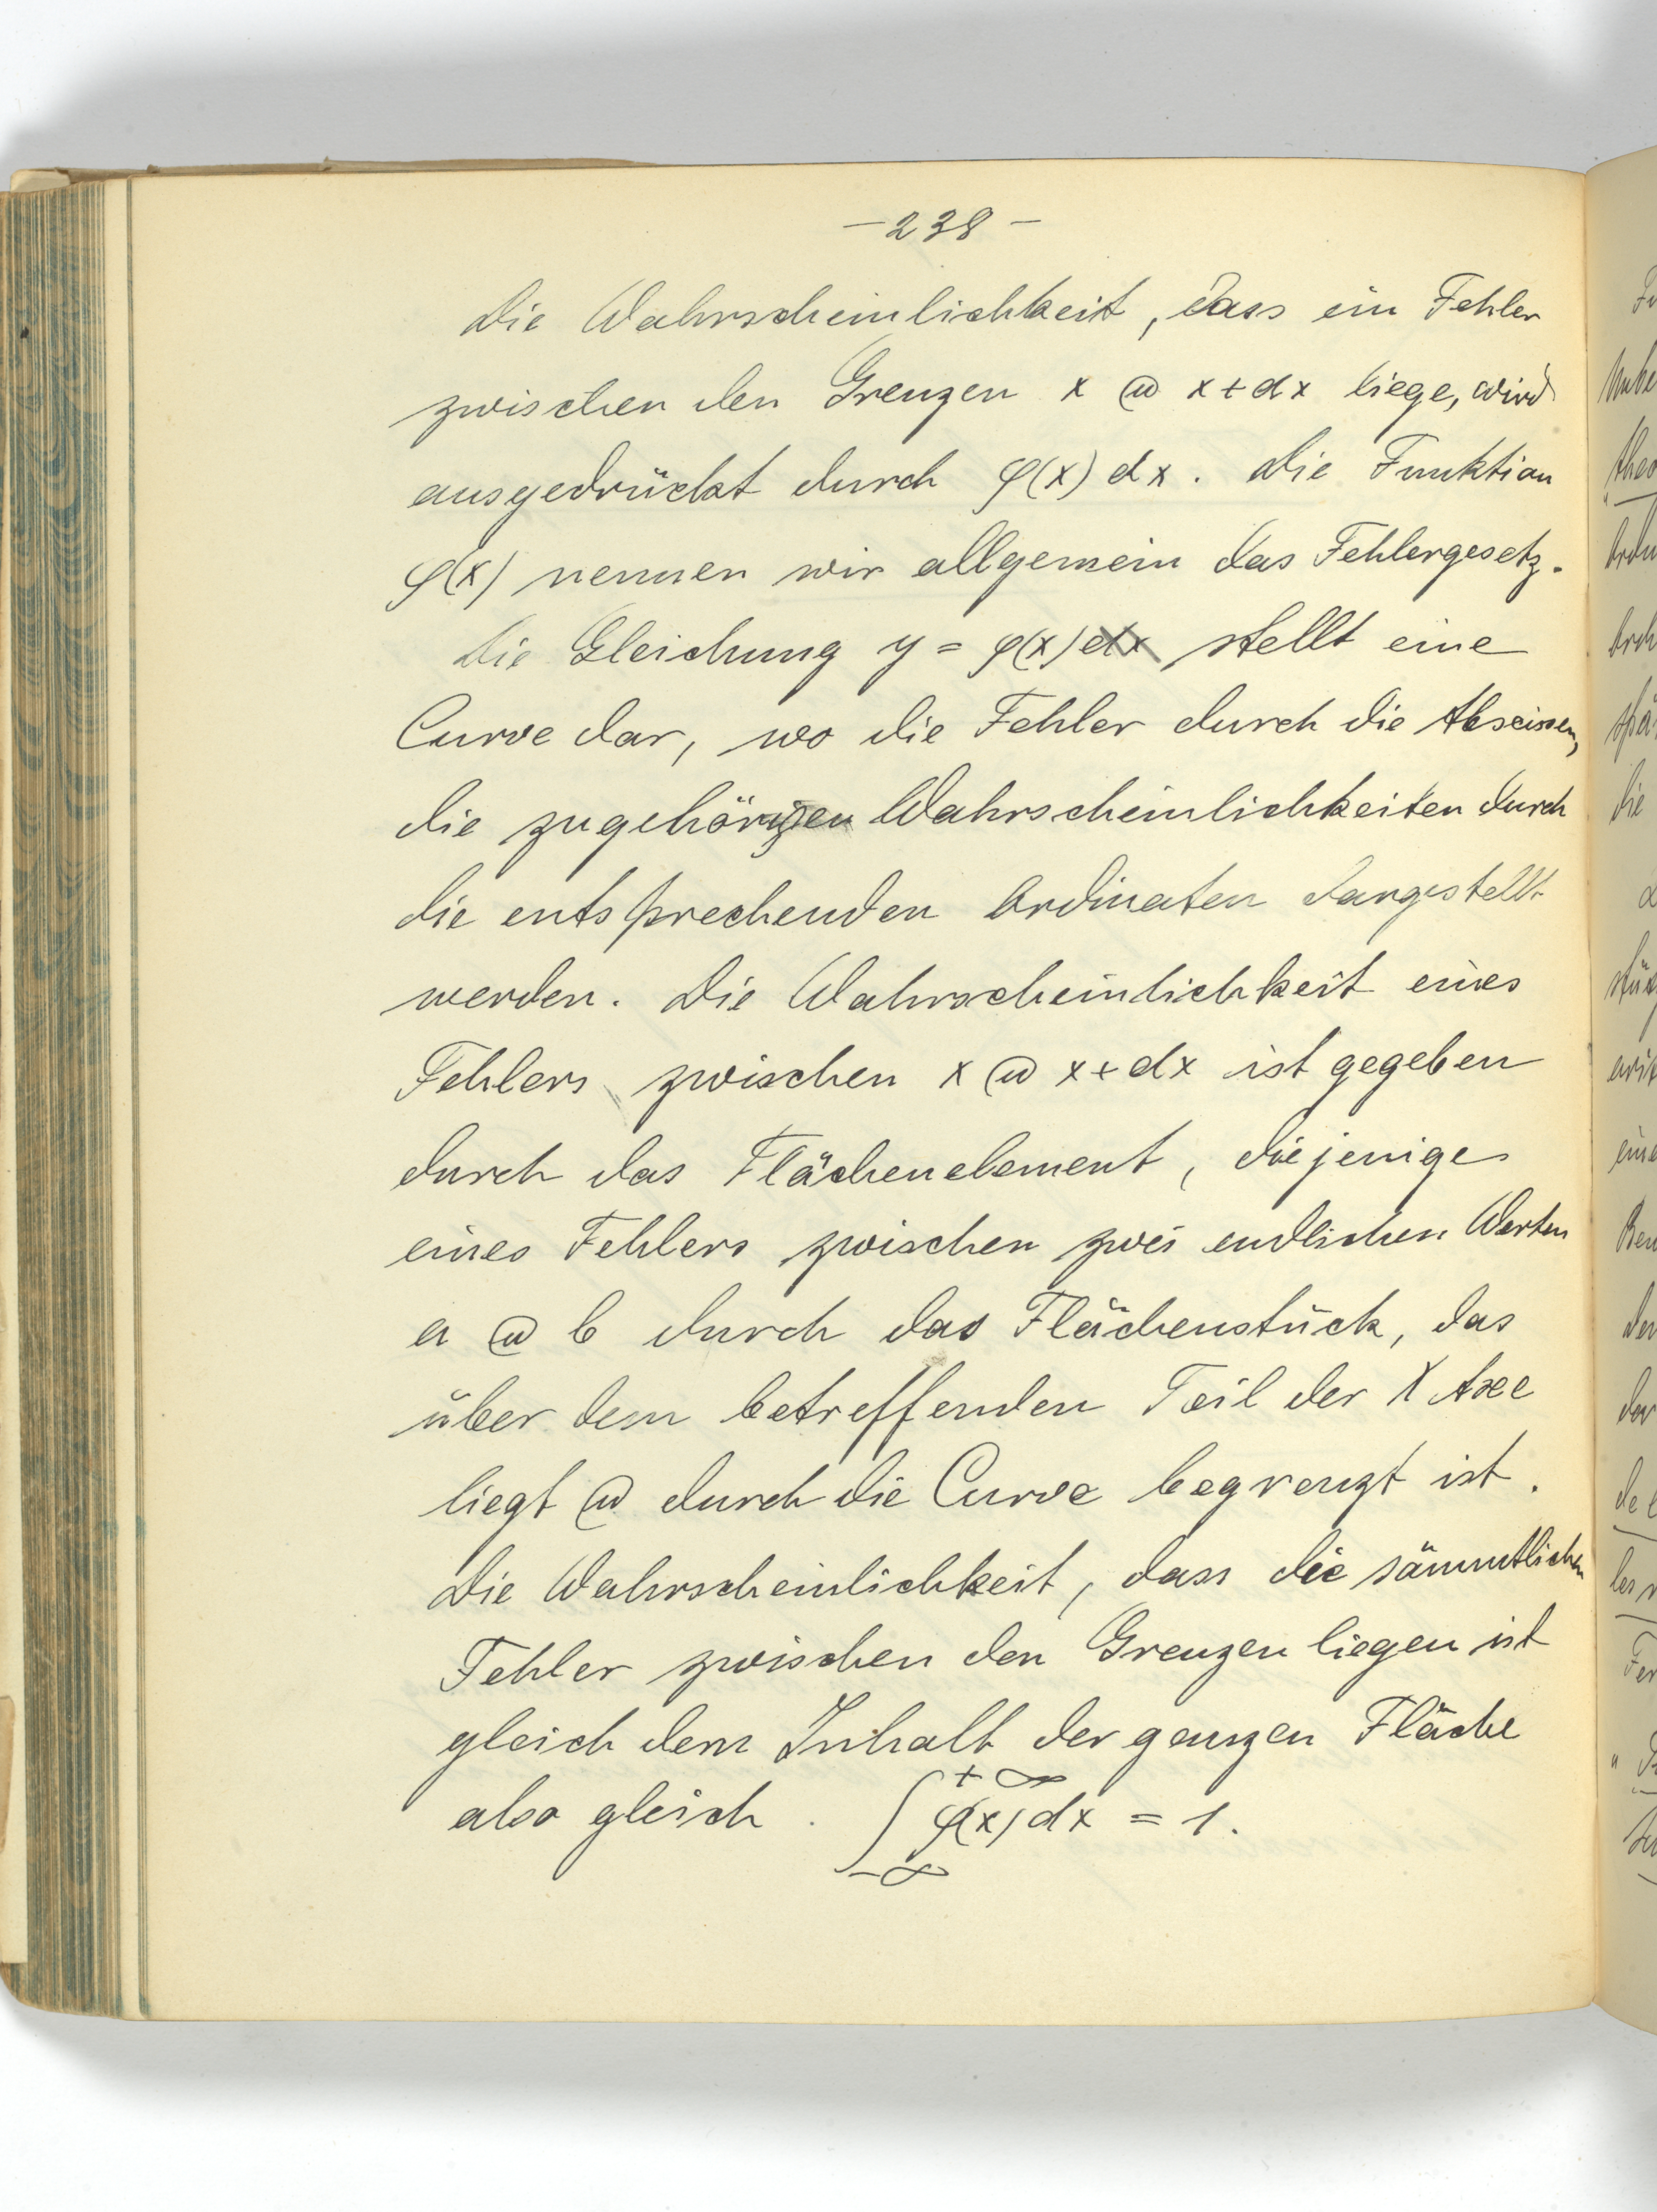 –238–
Die Wahrscheinlichkeit, dass ein Fehler
zwischen den Grenzen x u x+dx liege, wird
ausgedrückt durch φ(x) dx. Die Funktion
φ(x) nennen wir allgemein das Fehlergesetz.
Die Gleichung y = φ(x) dx stellt eine
Curve dar, wo die Fehler durch die Abscissen,
die zugehörigen Wahrscheinlichkeiten durch
die entsprechenden Ordinaten dargestellt
werden. Die Wahrscheinlichkeit eines
Fehlers zwischen x u x+dx ist gegeben
durch das Flächenelement, diejenige
eines Fehlers zwischen zwei endlichen Werten
a u b durch das Flächenstück, das
über dem betreffenden Teil der X Axe
liegt u durch die Curve begrenzt ist.
Die Wahrscheinlichkeit, dass die sämmtlichen
Fehler zwischen den Grenzen liegen ist
gleich dem Inhalt der ganzen Fläche
also gleich ∫_{-∞}^{+∞} φ(x) dx = 1.